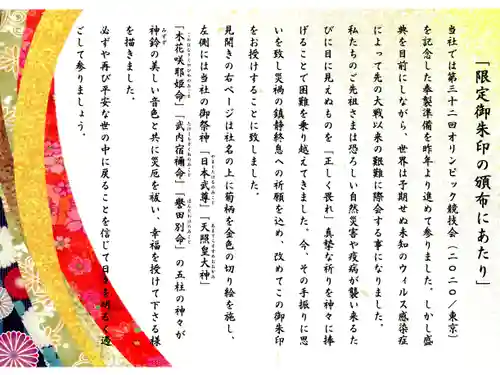 「限定御朱印の頒布にあたり」
当社では第三十二回オリンピック競技会（二〇二〇／東京）
を記念した奉製準備を昨年より進めて参りました。しかし盛
典を目前にしながら、世界は予期せぬ未知のウィルス感染症
によって先の大戦以来の艱難に際会する事になりました。
私たちのご先祖さまは恐ろしい自然災害や疫病が襲い来るた
びに目に見えぬものを「正しく畏れ」真摯な祈りを神々に捧
げることで困難を乗り越えてきました。今、その手振りに思
いを致し災禍の鎮静終息への祈願を込め、改めてこの御朱印
をお授けすることに致しました。
見開きの右ページは社名の上に菊柄を金色の切り絵を施し、
左側には当社の御祭神「日本武尊」「天照皇大神」
「木花咲耶姫命」「武内宿禰命」「誉田別命」の五柱の神々が
神鈴の美しい音色と共に災厄を祓い、幸福を授けて下さる様
を描きました。
必ずや再び平安な世の中に戻ることを信じて日々を明るく過
ごして参りましょう。